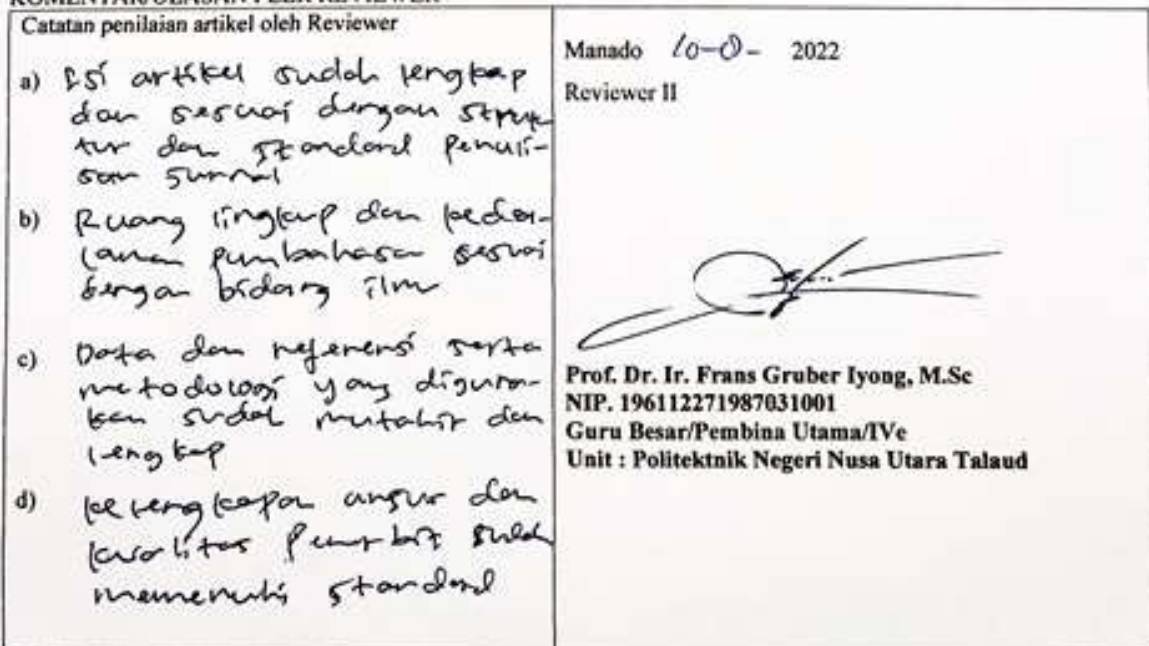 KOMENTAR/ULASAN PEER REVIEWER
Catatan penilaian artikel oleh Reviewer
a) Isi artikel sudah lengkap
dan sesuai dengan struk
tur dan standard penuli-
san Jurnal
b) Ruang lingkup dan keda-
laman pembahasan sesuai
dengan bidang ilmu
c) Data dan referensi serta
metodologi yang diguna-
kan sudah mutahir dan
lengkap
d) kelengkapan unsur dan
kualitas Penerbit sudah
memenuhi standard
Manado 2022
Reviewer II
Prof. Dr. Ir. Frans Gruber Iyong, M.Sc
NIP. 196112271987031001
Guru Besar/Pembina Utama/IVe
Unit : Politektnik Negeri Nusa Utara Talaud